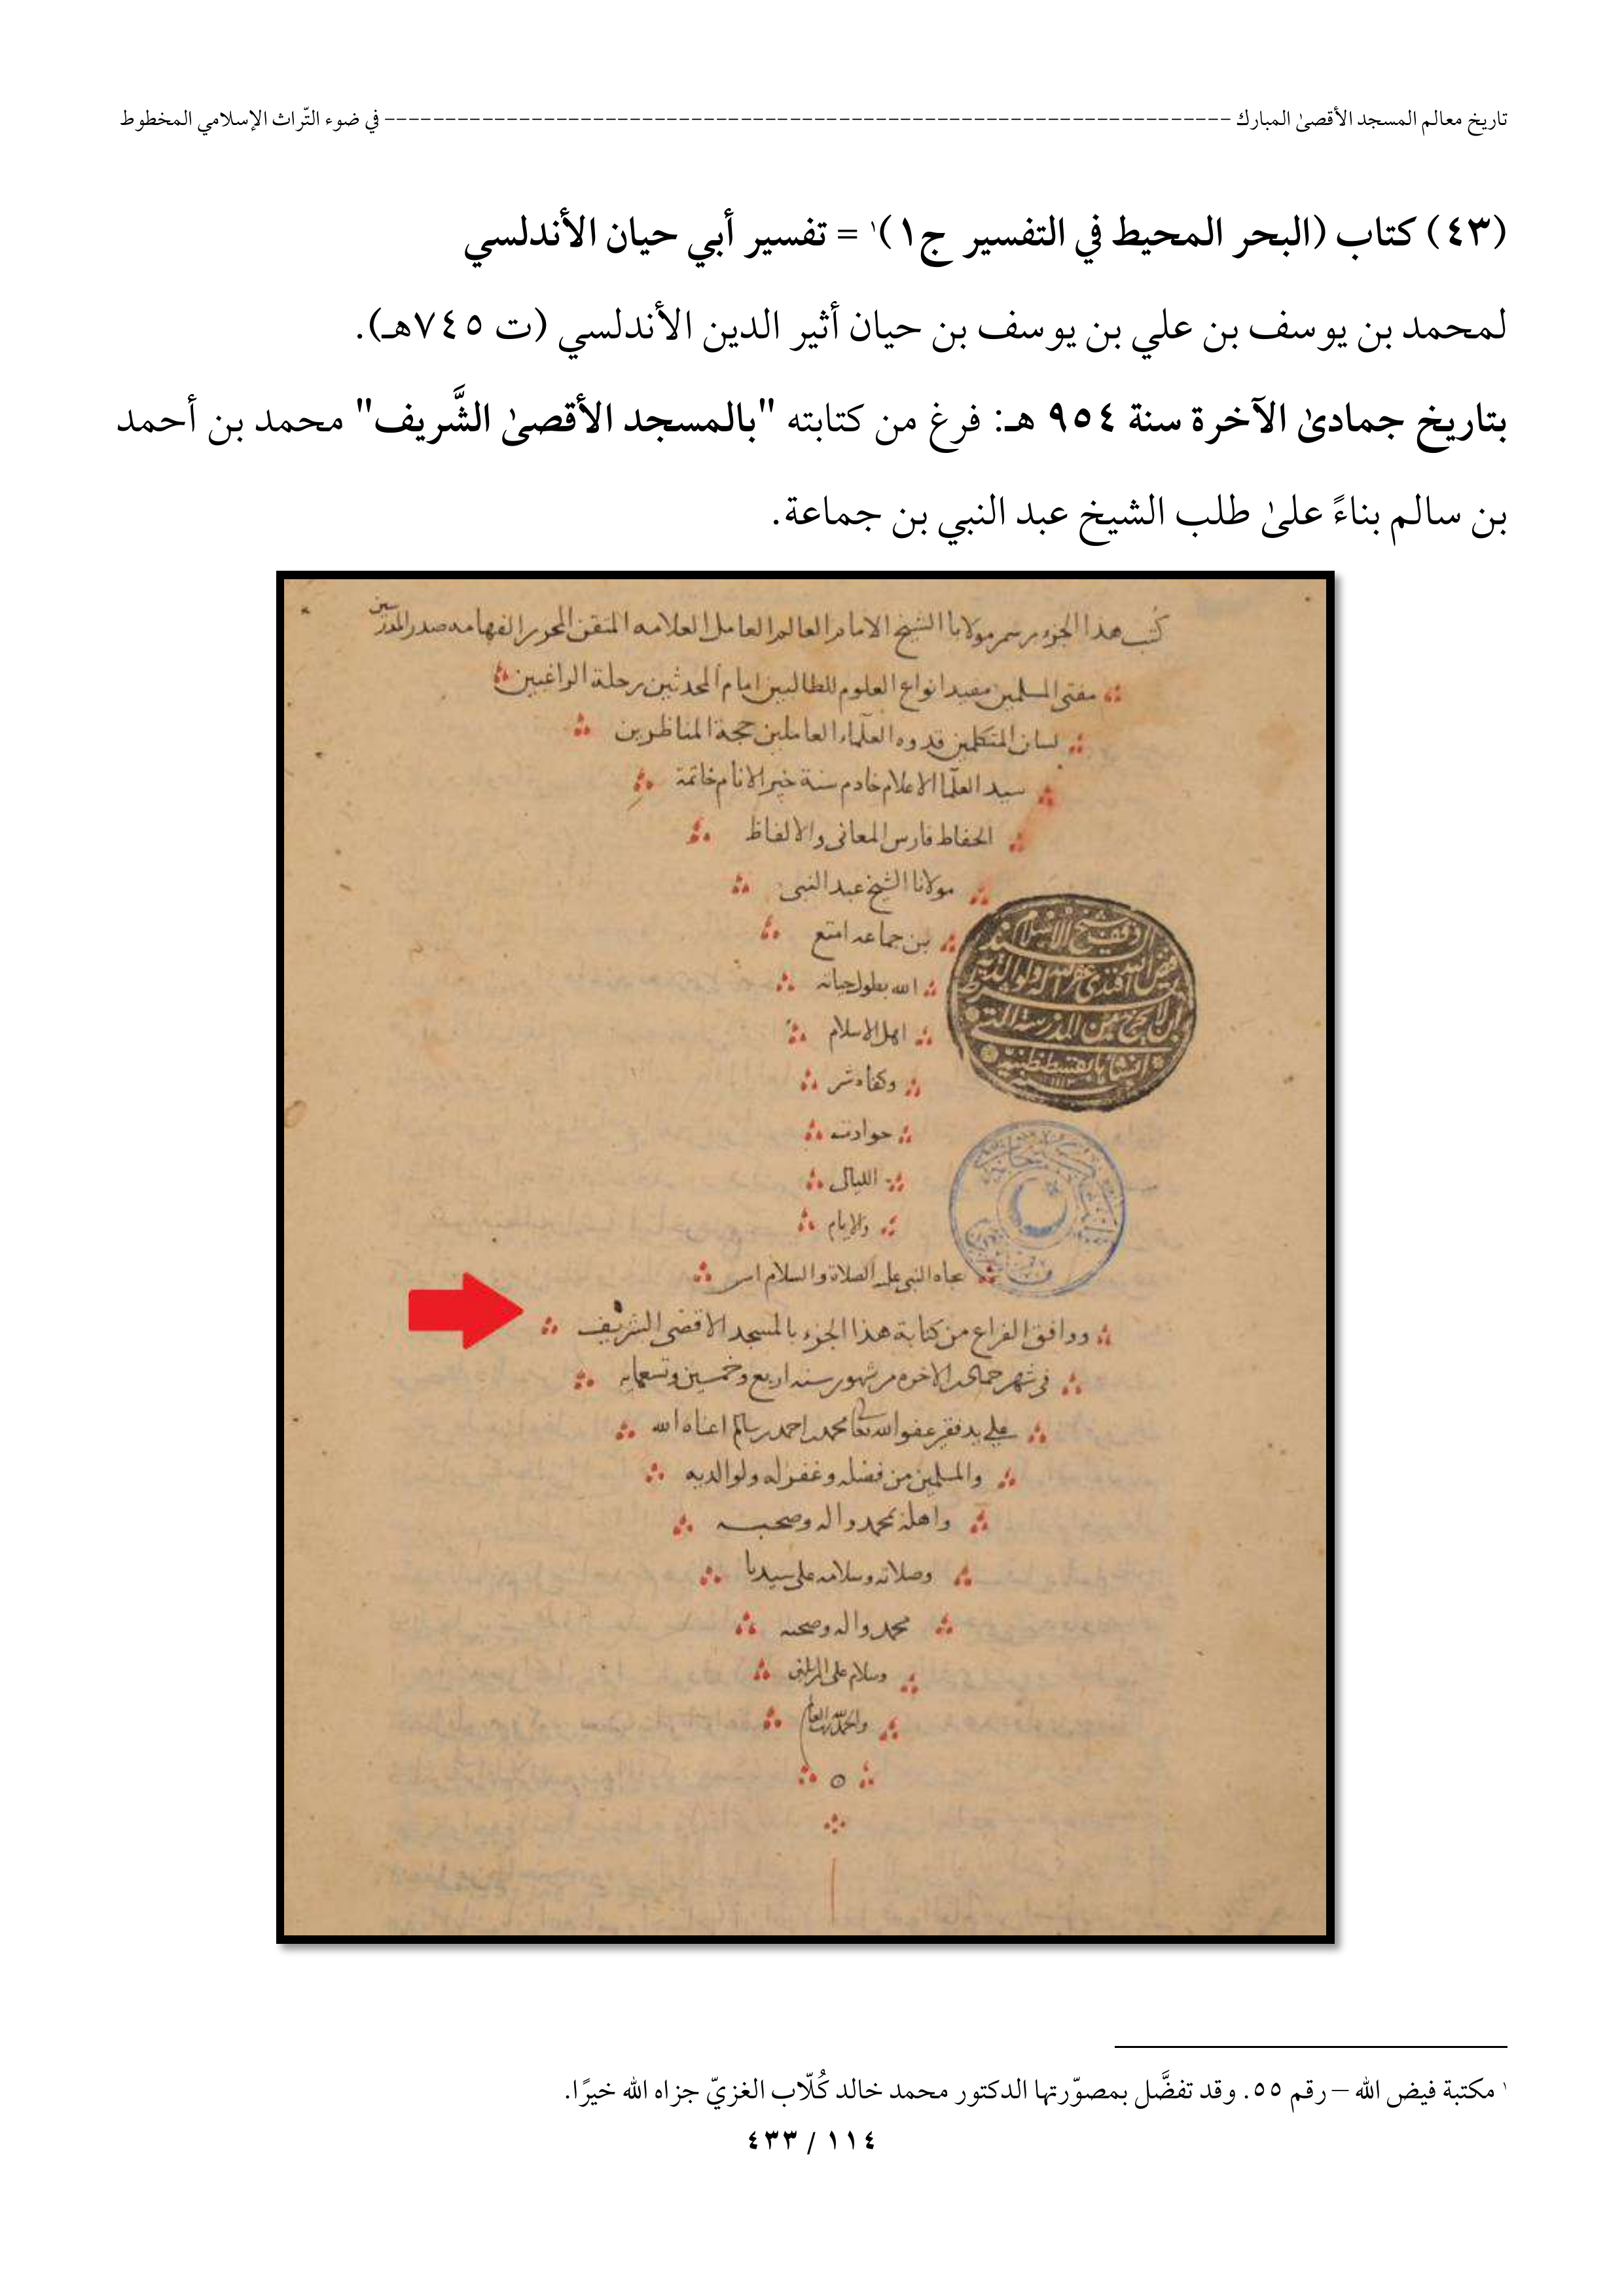 تاريخ معالم المسجد الأقصىٰ المبارك ---------------------------------------------------------------------- في ضوء التّراث الإسلامي المخطوط
(٤٣) كتاب (البحر المحيط في التفسير ج١)١ = تفسير أبي حيان الأندلسي
لمحمد بن يوسف بن علي بن يوسف بن حيان أثير الدين الأندلسي (ت ٧٤٥هـ).
بتاريخ جمادىٰ الآخرة سنة ٩٥٤ هـ: فرغ من كتابته "بالمسجد الأقصىٰ الشَّريف" محمد بن أحمد
بن سالم بناءً علىٰ طلب الشيخ عبد النبي بن جماعة.
كتب هدا الجزو برسم مولانا الشيخ الامام العالم العامل العلامه المتقن المحرر الفهامه صدر المدرسين
مفتى المسلمين مفيد انواع العلوم للطالبين امام المحدثين رحلة الراغبين
لسان المتكلمين قدوه العلماء العاملين حجة المناظرين
سيد العلما الاعلام خادم سنة خير الانام خاتمة
الحفاظ فارس المعانى والالفاظ
مولانا الشيخ عبد النبى
بن جماعه امتع
الله بطول حياته
اهل الاسلام
وكفاه شر
حوادث
الليالى
والايام
بجاه النبى عليه الصلاة والسلام
ووافق الفراغ من كتابة هذا الجزء بالمسجد الاقصى الشريف
فى شهر جمادى الاخره من شهور سنه اربع وخمسين وتسعمايه
على يد فقير عفو الله تعالى محمد بن احمد بن سالم اغناه الله
والمسلمين من فضله وغفر له ولوالديه
واهله بمحمد واله وصحبه
وصلاته وسلامه على سيدنا
محمد واله وصحبه
وسلام على المرسلين
والحمد لله رب العالمين
١ مكتبة فيض الله – رقم ٥٥. وقد تفضَّل بمصوّرتها الدكتور محمد خالد كُلّاب الغزيّ جزاه الله خيرًا.
١١٤ / ٤٣٣